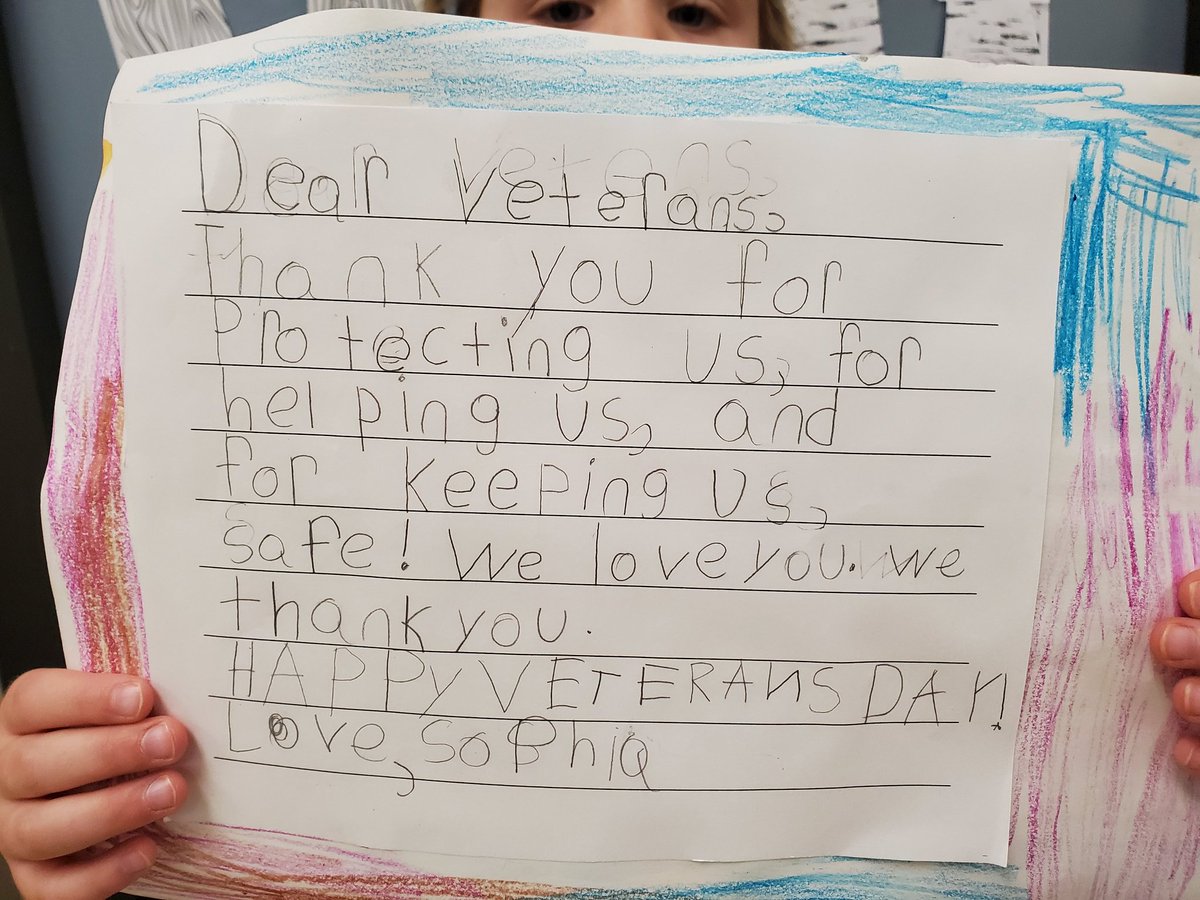 Dear Veterans,
Thank you for
Protecting us, for
helping us, and
for keeping us,
safe! We love you. We
thank you.
HAPPY VETERANS DAY!
Love, Sophia